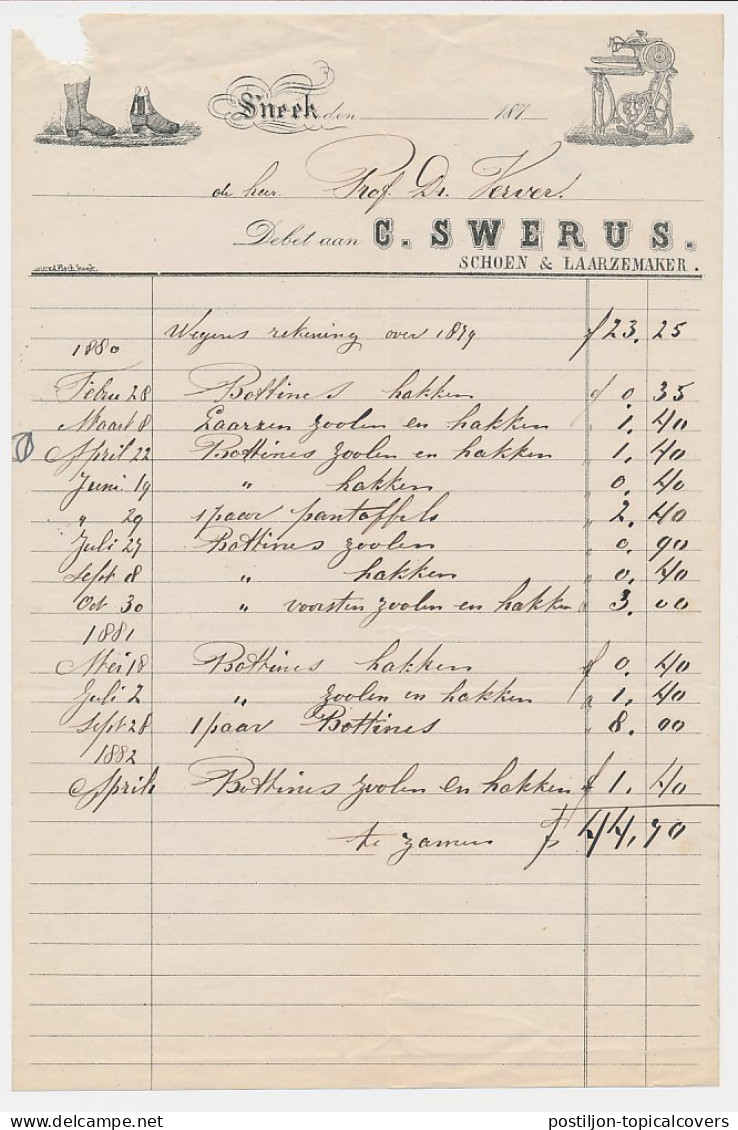 Sneek den 187
de heer Prof. Dr. Verver.
Debet aan C. SWERUS.
SCHOEN & LAARZEMAKER.
Wegens rekening over 1879 f 23.25
1880
Febru 28 Bottines hakken f 0.35
Maart 8 Laarzen zoolen en hakken " 1.40
April 22 Bottines zoolen en hakken " 1.40
Juni 19 " hakken " 0.40
" 29 1 paar pantoffels " 2.40
Juli 27 Bottines zoolen " 0.90
Sept 8 " hakken " 0.40
Oct 30 " voorsten zoolen en hakken " 3.00
1881
Mei 18 Bottines hakken f 0.40
Juli 2 " zoolen en hakken " 1.40
Sept 28 1 paar Bottines " 8.00
1882
April Bottines zoolen en hakken f 1.40
te zamen f 44,70
postiljon-topicalcovers